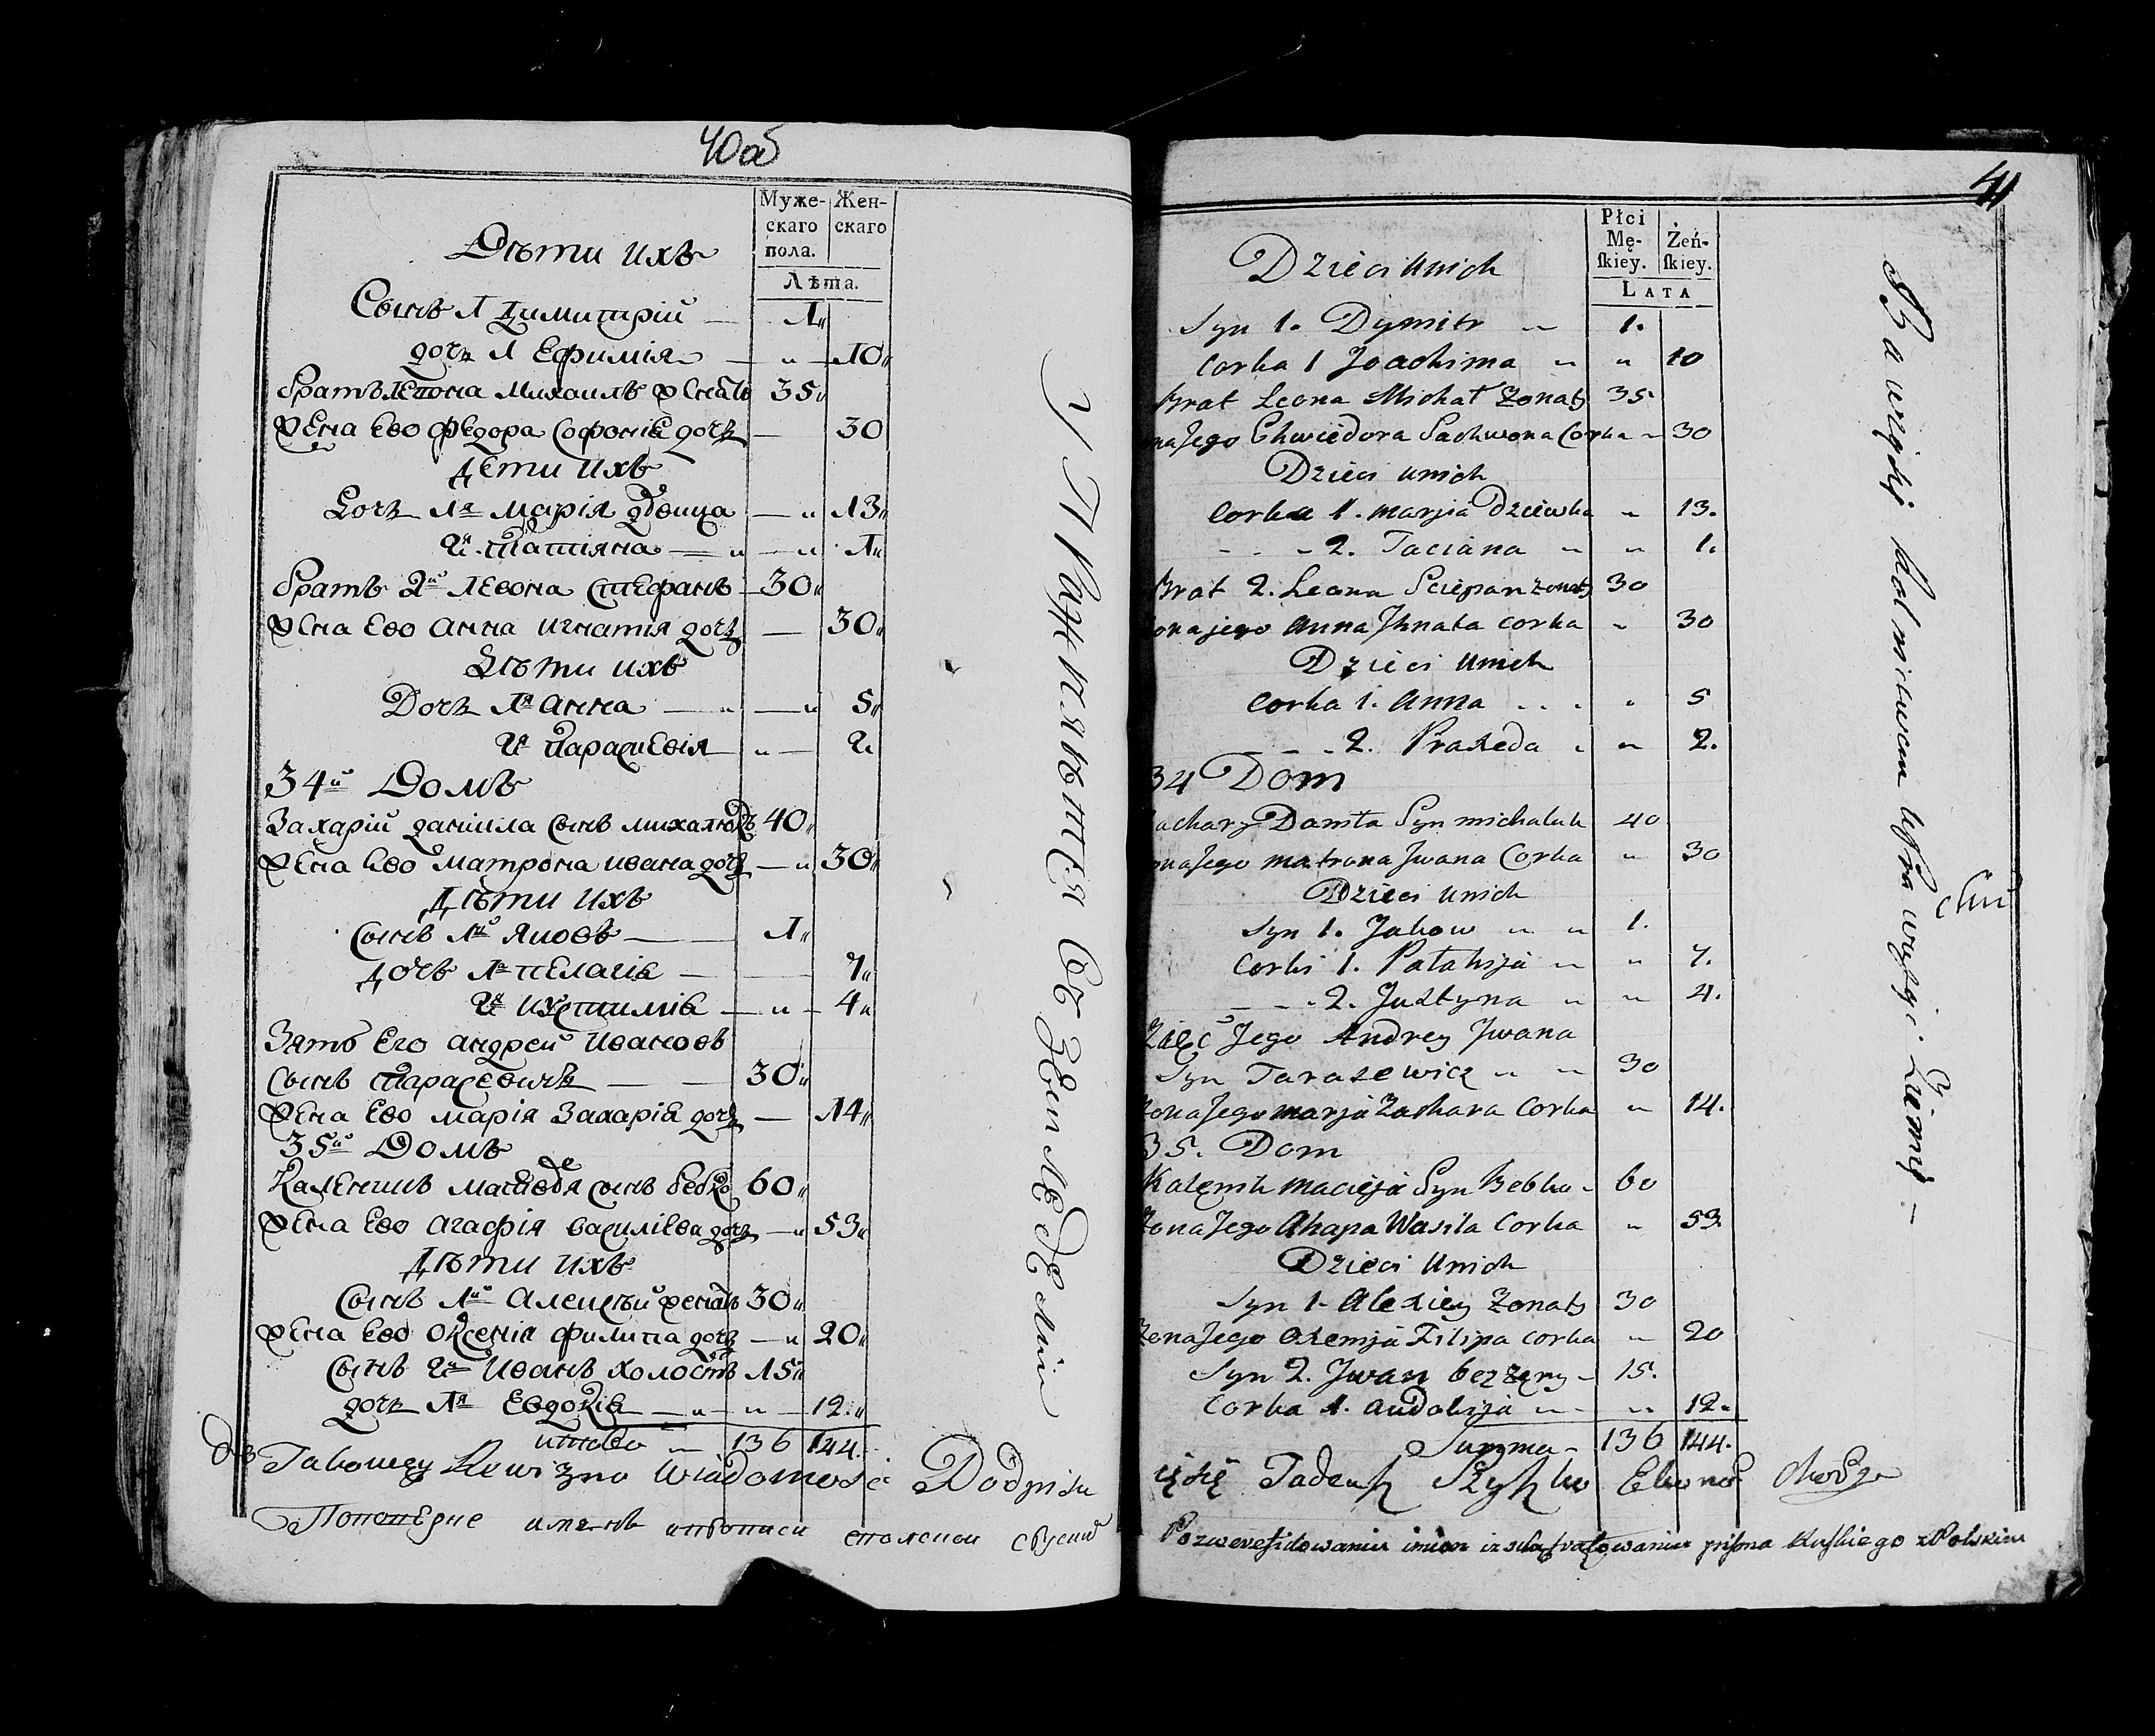 40об
Муже-
скаго
пола.
Жен-
скаго
Лѣта.
Дѣти ихъ
Сынъ 1 Димитрій — 1
дочь 1 Ефимія — 10
братъ Леона Михаилъ женатъ 35
жена ево Федора Софоніѣ дочь — 30
Дети ихъ
Дочь 1я Марія двица — 13
2я Татіяна — 1
братъ 2й Левона Стефанъ 30
жена ево Анна Игнатія дочь — 30
Дѣти ихъ
Дочь 1я Анна — 5
2я Параскевія — 2
34й Домъ
Захарій Даніила сынъ Михалюкъ 40
жена ево Матрона Ивана дочь — 30
Дѣти ихъ
Сынъ 1й Яковъ — 1
Дочь 1я Пелагіѣ — 7
2я Иустиміѣ — 4
Зять Его Андрей Ивановъ
Сынъ Тарасевичь — 30
жена ево Марія Захаріѣ дочь — 14
35й Домъ
Каленикъ Матѳеѣя сынъ Бебко 60
жена ево Агафія Василіева дочь — 53
Дѣти ихъ
Сынъ 1й Алексѣй женатъ 30
жена ево Оксенія Филипа дочь — 20
Сынъ 2й Иванъ холостъ 15
дочь 1я Евдокіѣ — 12
итого 136 144
Takowęgy Rewizno Wiadomosc Dodpisu
У Пражняѣтся въ Земледелии
41
Płci
Mę-
ſkiey.
Żeń-
ſkiey.
LATA
Dzieci Unich
Syn 1. Dymitr 1.
Corka 1 Joachima 10
Brat Leona Michał Zonaty 35
na Jego Chwiedora Sachwona Corka 30
Dzieci Unich
Corka 1. Marjia Dziewka 13.
2. Taciana 1.
Brat 2. Leona Sciepan Zonaty 30
ona jego Anna Jhnata Corka 30
Dzieci Unich
Corka 1. Anna 5
2. Praxeda 2.
34 Dom
achary Daniła Syn Michaluk 40
ona Jego Matrona Jwana Corka 30
Dzieci Unich
Syn 1. Jakow 1.
Corki 1. Pałahija 7.
2. Justyna 4.
Zięć Jego Andrey Jwana
Syn Tarasewicz 30
Zona Jego Marja Zachara Corka 14.
35. Dom
Kalęnik Macieja Syn Bebko 60
Zona Jego Ahapa Wasila Corka 53
Dzieci Unich
Syn 1. Alexiey Zonaty 30
Zena Jego Oxemja Filipa Corka 20
Syn 2. Jwan bezżęny 15.
Corka 1. Audokija 12.
Summa 136 144.
Tadeusz
imion pisma Ruskiego z Polskim